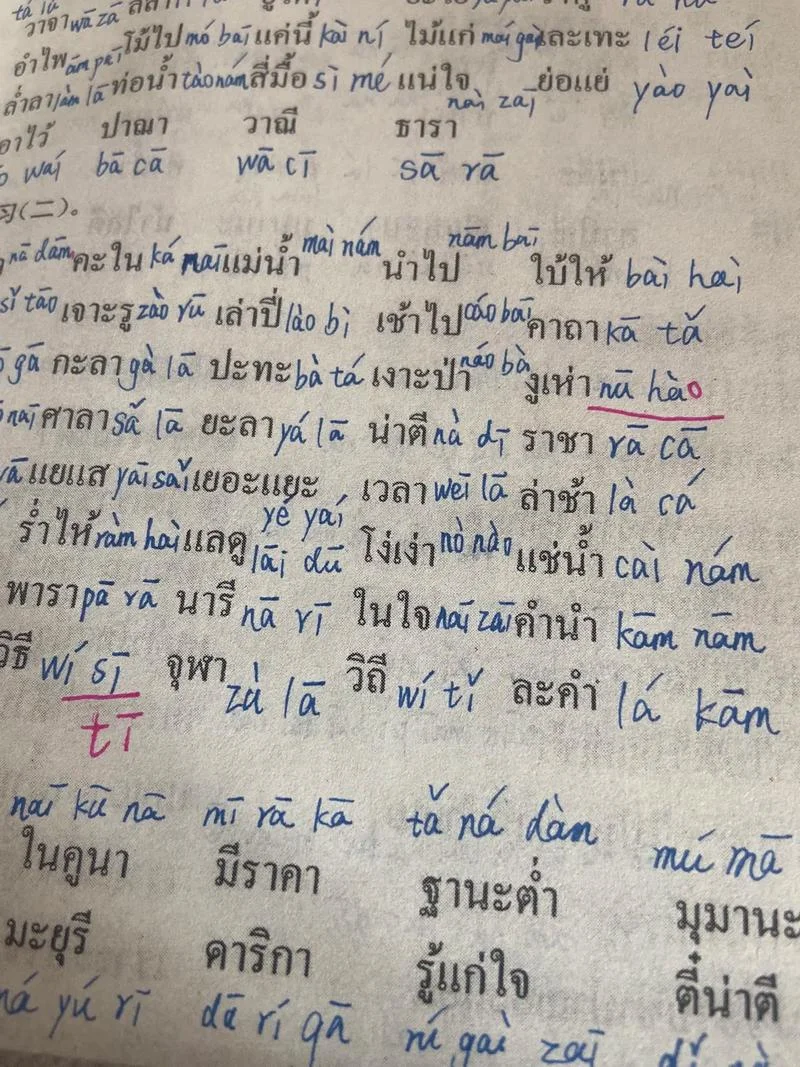 วาจา wā zā
อำไพ ām pāi โม้ไป mó bāi แค่นี้ kài ní ไม้แก่ mái gài และเทะ léi teí
ล่ำลา làm lā ท่อน้ำ tào nám สี่มื้อ sì mé แน่ใจ nài zāi ย่อแย่ yào yaì
อาไว้ ปาณา วาณี ธารา
wái bā cā wā cī sā rā
习(二)。
nā dām คะใน ká nāi แม่น้ำ mài nám นำไป nām bāi ใบ้ให้ bài hài
sǐ tāo เจาะรู zào rū เล่าปี่ lào bì เช้าไป cáo bāi คาถา kā tǎ
gā กะลา gà lā ปะทะ bà tá เงาะป่า náo bà งูเห่า nū hào
nāi ศาลา sǎ lā ยะลา yá lā น่าตี nà dī ราชา rā cā
แยแส yāi sǎi เยอะแยะ yé yaí เวลา wēi lā ล่าช้า là cá
ร่ำไห้ ràm hài แลดู lāi dū โง่เง่า nò nào แช่น้ำ cài nám
พารา pā rā นารี nā rī ในใจ nāi zāi คำนำ kām nām
วิธี wí sī จุฬา zù lā วิถี wí tǐ ละคำ lá kām
tī
nāi kū nā mī rā kā tǎ ná dàm mú mā
ในคูนา มีราคา ฐานะต่ำ มุมานะ
มะยุรี ดาริกา รู้แก่ใจ ตี๋น่าตี
yú rī dā rí gā rú gài zāi